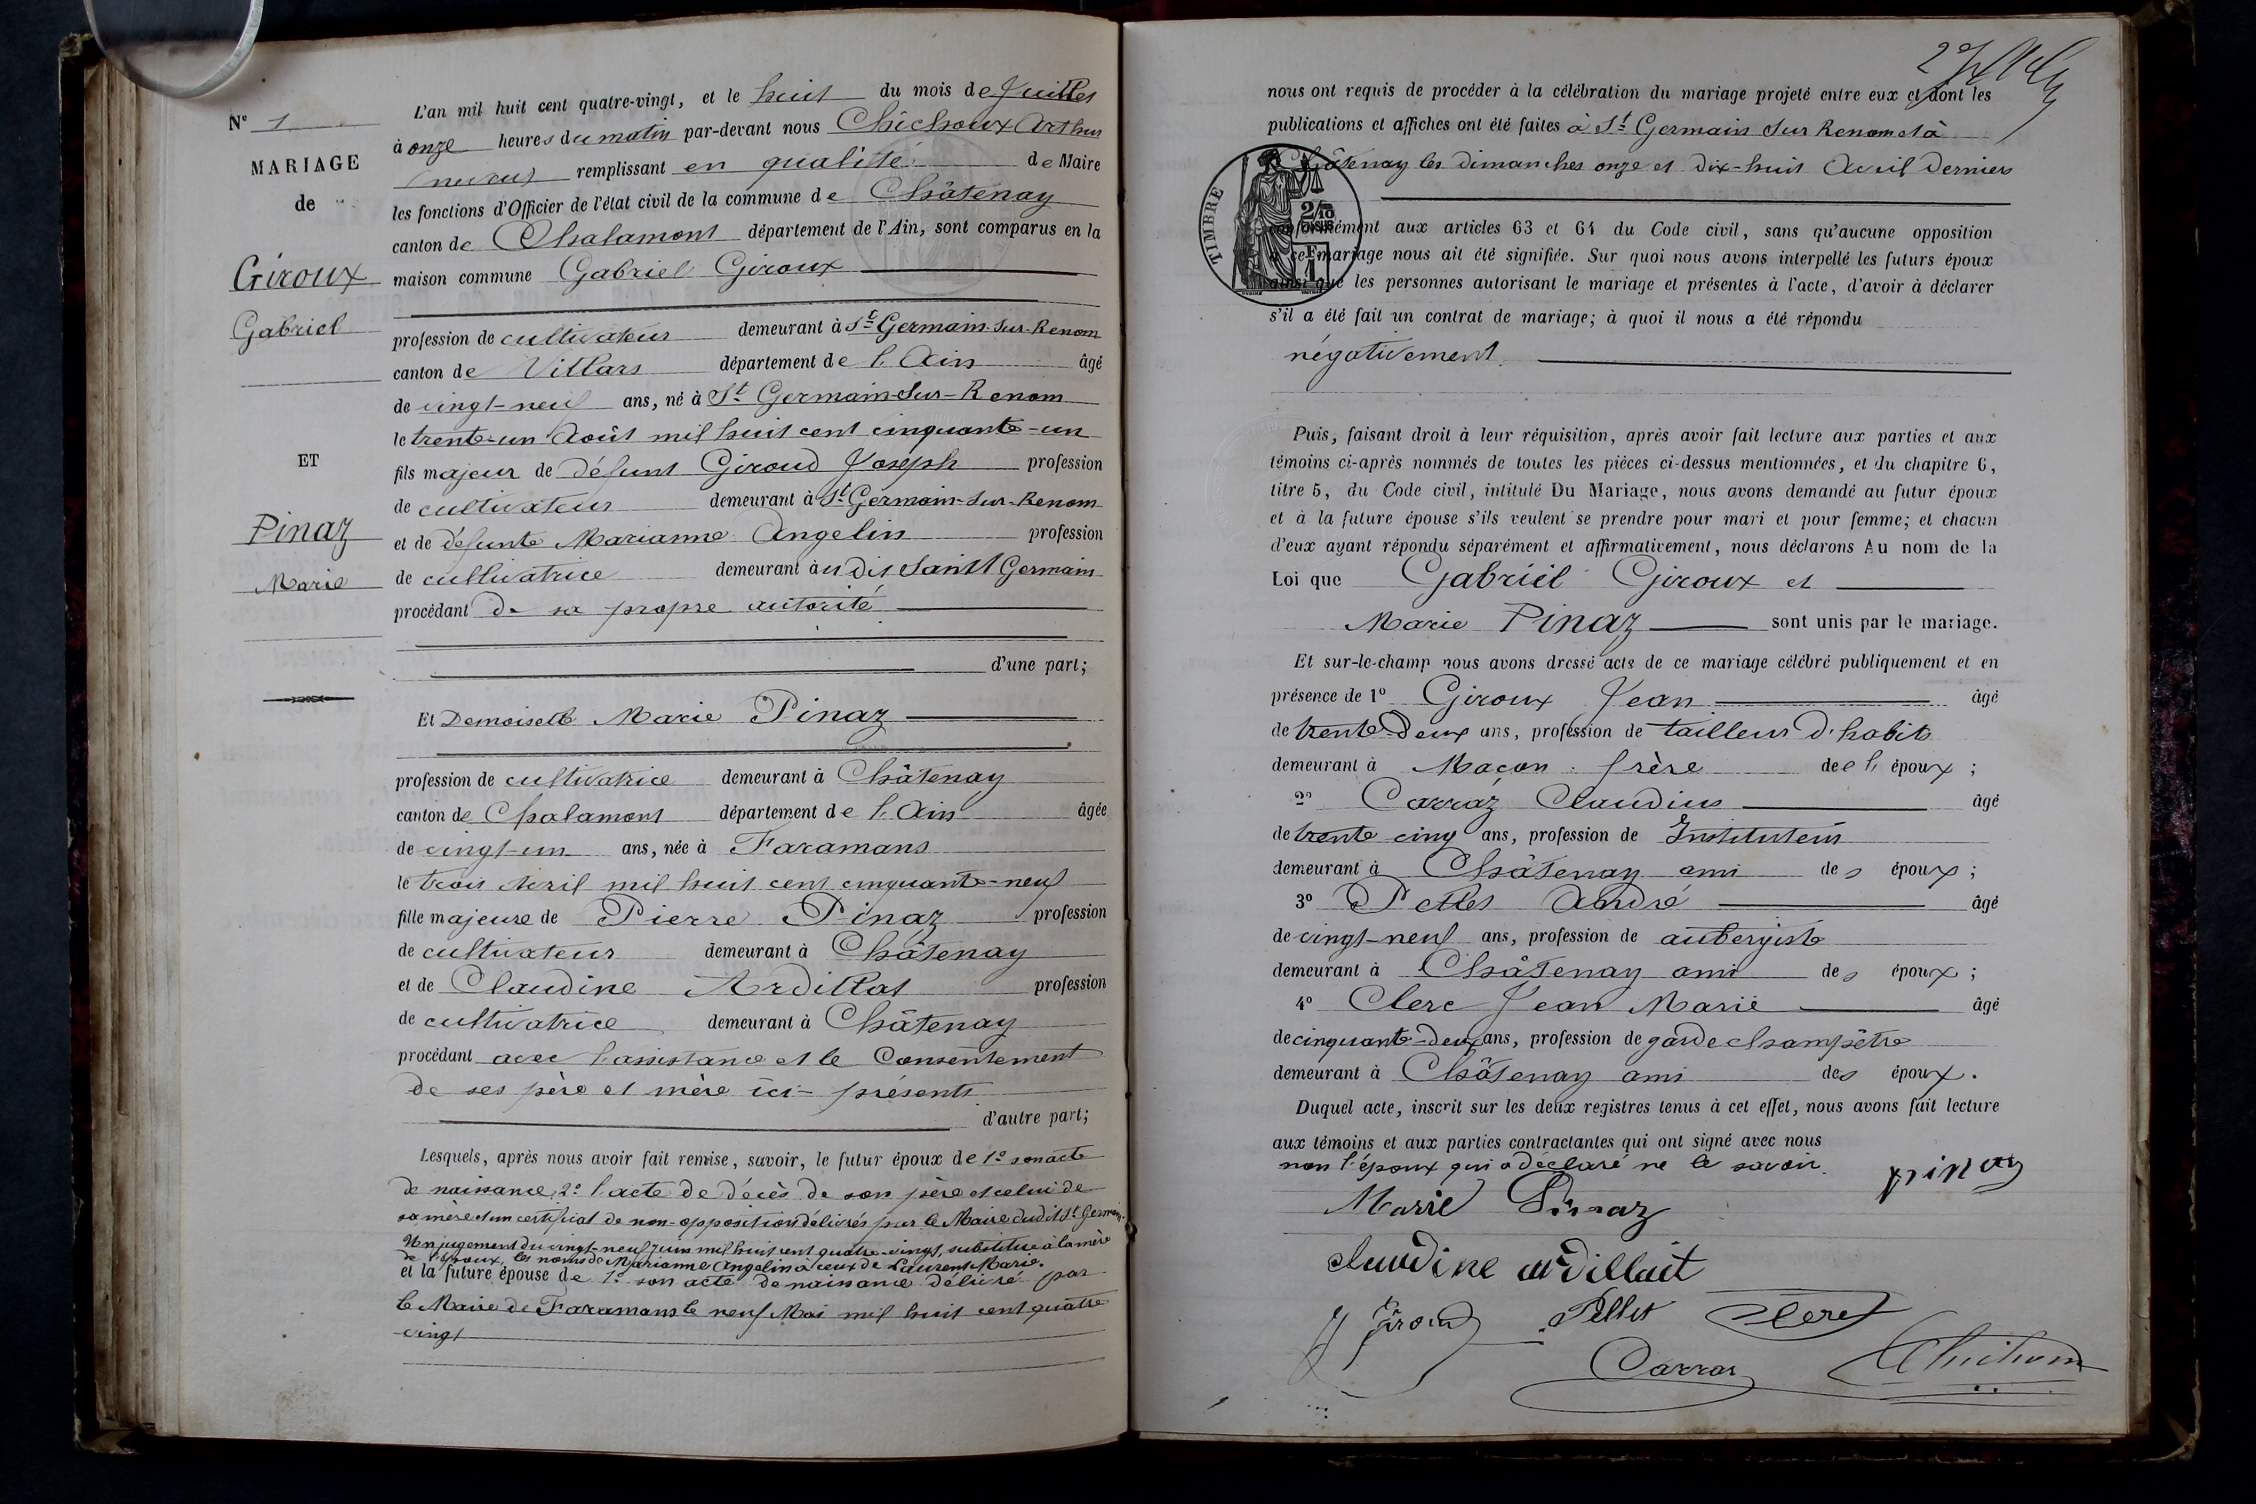 N° 1
MARIAGE
de
Giroux
Gabriel
ET
Pinaz
Marie
L'an mil huit cent quatre-vingt, et le huit du mois de Juillet
à onze heures du matin par-devant nous Chichoux Arthur
remplissant en qualité de Maire
les fonctions d'Officier de l'état civil de la commune de Châtenay
canton de Chalamont département de l'Ain, sont comparus en la
maison commune Gabriel Giroux
profession de cultivateur demeurant à St Germain-sur-Renom
canton de Villars département de l'Ain âgé
de vingt-neuf ans, né à St Germain-sur-Renom
le trente-un Août mil huit cent cinquante-un
fils majeur de défunt Giroud Joseph profession
de cultivateur demeurant à St Germain-sur-Renom
et de défunte Marianne Angelin profession
de cultivatrice demeurant à udit Saint Germain
procédant de sa propre autorité
d'une part;
Et Demoiselle Marie Pinaz
profession de cultivatrice demeurant à Châtenay
canton de Chalamont département de l'Ain âgée
de vingt-un ans, née à Faramans
le trois Avril mil huit cent cinquante-neuf
fille majeure de Pierre Pinaz profession
de cultivateur demeurant à Châtenay
et de Claudine Ardillat profession
de cultivatrice demeurant à Châtenay
procédant avec l'assistance et le Consentement
de ses père et mère ici-présents
d'autre part;
Lesquels, après nous avoir fait remise, savoir, le futur époux de 1° son acte
de naissance, 2° l'acte de décès de son père et celui de
sa mère et un certificat de non-opposition délivrés par le Maire dudit St Germain.
Un jugement du vingt-neuf Juin mil huit cent quatre-vingt, substitue à la mère
de l'époux, les noms de Marianne Angelin à ceux de Laurent Marie.
et la future épouse de 1° son acte de naissance délivré par
le Maire de Faramans le neuf Mai mil huit cent quatre
vingt
nous ont requis de procéder à la célébration du mariage projeté entre eux et dont les
publications et affiches ont été faites à St Germain sur Renom et à
Châtenay les dimanches onze et dix-huit Avril dernier
TIMBRE
2/10
EN SUS
conformément aux articles 63 et 64 du Code civil, sans qu'aucune opposition
à ce mariage nous ait été signifiée. Sur quoi nous avons interpellé les futurs époux
ainsi que les personnes autorisant le mariage et présentes à l'acte, d'avoir à déclarer
s'il a été fait un contrat de mariage; à quoi il nous a été répondu
négativement.
Puis, faisant droit à leur réquisition, après avoir fait lecture aux parties et aux
témoins ci-après nommés de toutes les pièces ci-dessus mentionnées, et du chapitre 6,
titre 5, du Code civil, intitulé Du Mariage, nous avons demandé au futur époux
et à la future épouse s'ils veulent se prendre pour mari et pour femme; et chacun
d'eux ayant répondu séparément et affirmativement, nous déclarons Au nom de la
Loi que Gabriel Giroux et
Marie Pinaz sont unis par le mariage.
Et sur-le-champ nous avons dressé acte de ce mariage célébré publiquement et en
présence de 1° Giroux Jean âgé
de trente-deux ans, profession de tailleur d'habits
demeurant à Maçon frère de l'époux;
2° Carraz Claudius âgé
de trente cinq ans, profession de Instituteur
demeurant à Châtenay ami des époux;
3° Pellet André âgé
de vingt-neuf ans, profession de aubergiste
demeurant à Châtenay ami des époux;
4° Clerc Jean Marie âgé
de cinquante-deux ans, profession de garde champêtre
demeurant à Châtenay ami des époux.
Duquel acte, inscrit sur les deux registres tenus à cet effet, nous avons fait lecture
aux témoins et aux parties contractantes qui ont signé avec nous
non l'époux qui a déclaré ne le savoir.
pinaz
Marie Pinaz
claudine ardillait
J Giroud Pellet Clerc
Carraz Chichoux